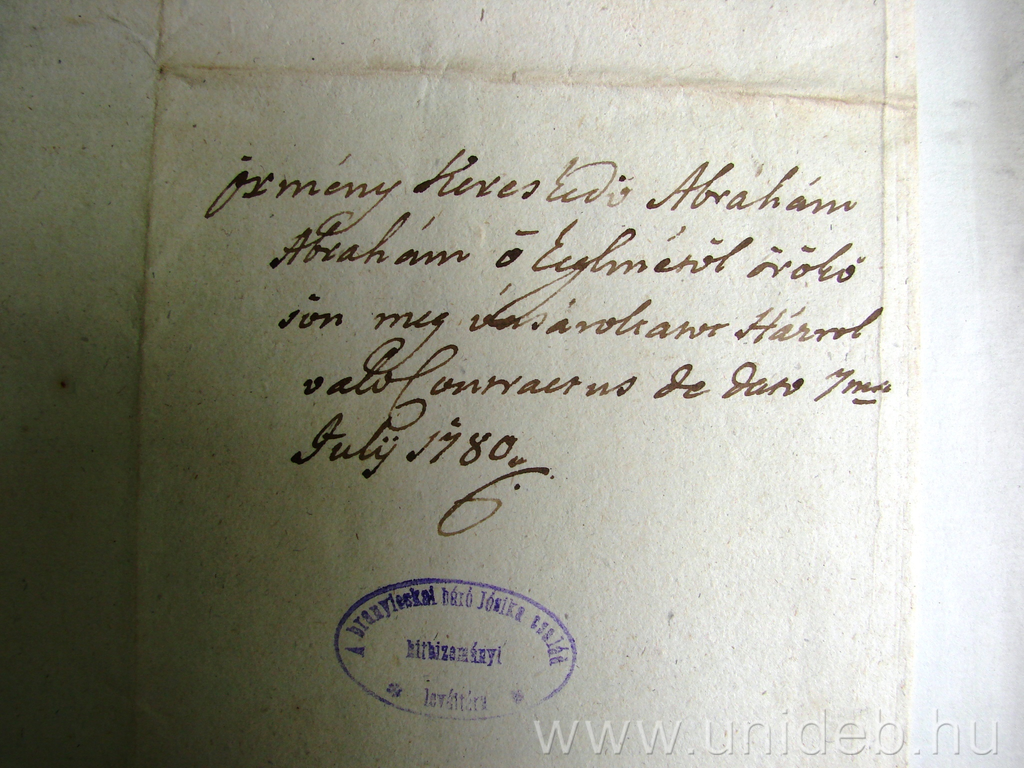 örmény Keres kedö Abráhám
Abrahám ö keglmétöl örökö
sön meg vásároltatot Házrol
valo Contractus de dato 7ma
Julÿ 1780
A branyicskai báró Jósika család
hitbizományi
levéltára
www.unideb.hu